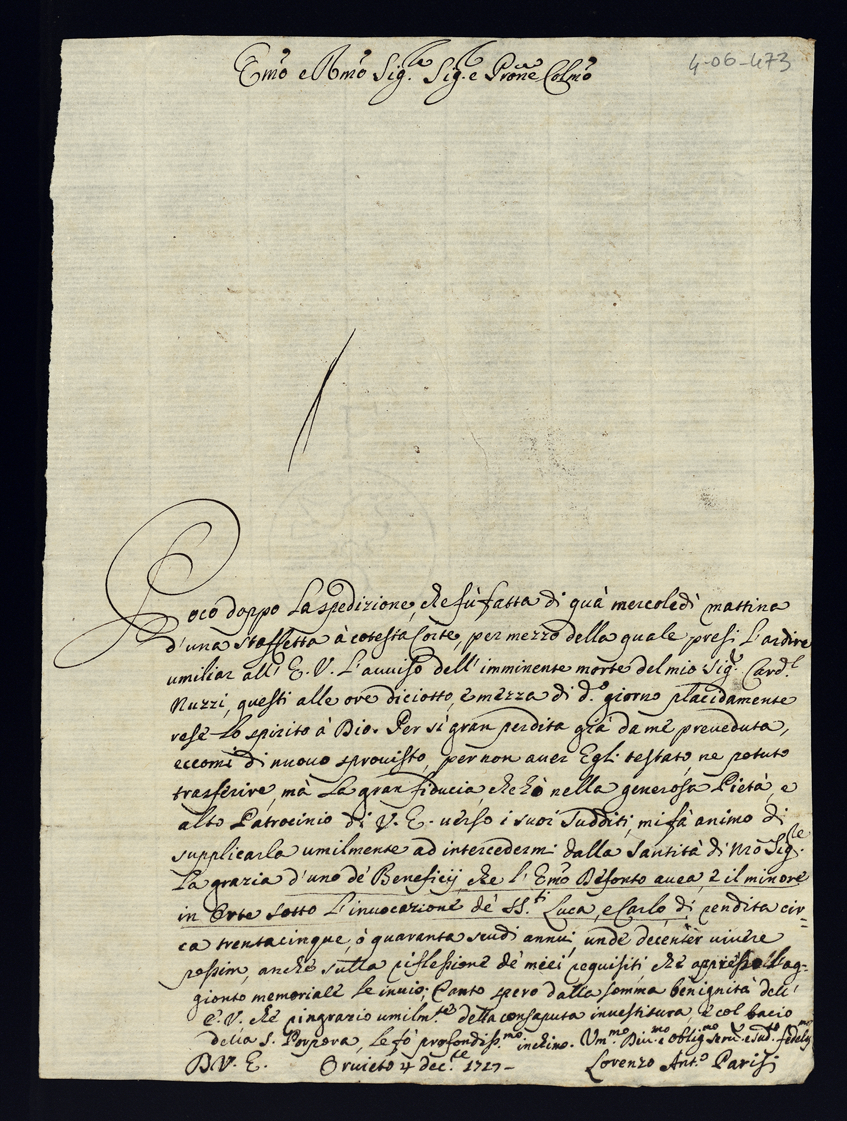 4-06-473
Emo e Rmo Sig.re Sig.e Prone Colmo
Poco doppo La spedizione, che fù fatta di quà mercoledì mattina
d'una Staffetta à cotesta Corte, per mezzo della quale presi L'ardire
umiliar all' E. V. L'auuiso dell'imminente morte del mio Sig.r Card.l
Nuzzi, questi alle ore diciotto, e mezza di d.o giorno placidamente
rese Lo spirito à Dio. Per si gran perdita già da me preueduta,
eccomi di nuouo sprouisto, per non auer Egli testato, ne potuto
trasferire, mà La gran fiducia che hò nella generosa Pietà, e
alto Patrocinio di V. E. uerso i suoi Sudditi, mi fà animo di
supplicarLa umilmente ad intercedermi dalla Santità di Nro Sig.re
La grazia d'uno de' Beneficij, che l' Emo Defonto auea, e il minore
in Orte sotto L'inuocazione de' SS.ti Luca, e Carlo, di rendita cir=
ca trentacinque, ò quaranta scudi annui, unde decenter uiuere
possim, anche sulla riflessione de' miei requisiti che appresso all'ag-
gionto memoriale Le inuio; Tanto spero dalla somma benignità dell'
E. V. che ringrazio umilm.te della consaputa inuestitura, e col bacio
della S. Porpora, Le fò profondiss.mo inchino. Um.mo Diu.mo e Oblig.mo Seru.e e Sud.to fedeliss
D. V. E. Oruieto 4 dec.re 1717 - Lorenzo Ant.o Parisi